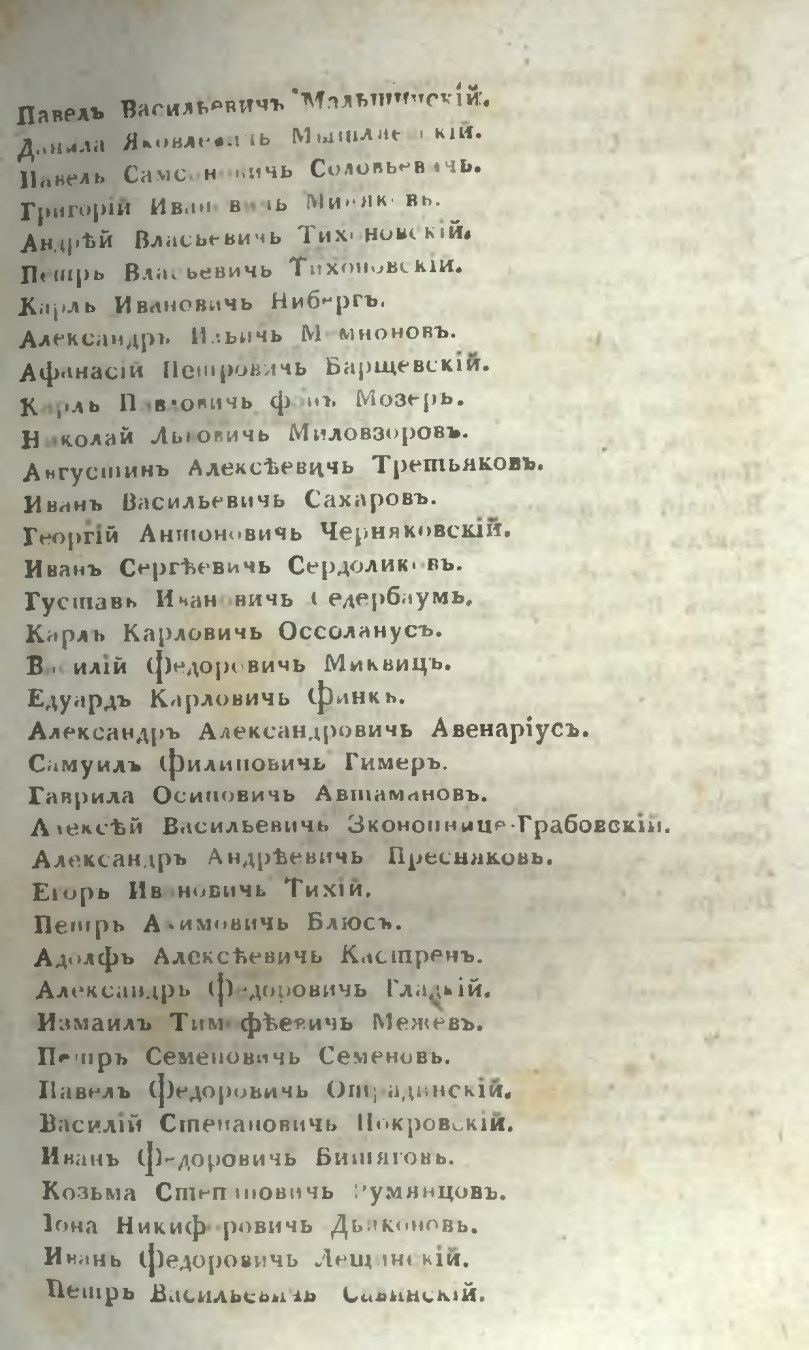 Павелъ Васильевичъ Малышинскій.
Данила Яковлевичь Мышляевскій.
Павелъ Самсоновичь Соловьевичь.
Григорій Ивановичь Миняковъ.
Андрѣй Власьевичь Тихоновскій.
Петръ Власьевичь Тихоновскій.
Карлъ Ивановичь Нибергъ.
Александръ Ильичь Мемноновъ.
Афанасій Петровичь Барщевскій.
Карлъ Павловичь фонъ Мозеръ.
Николай Львовичь Миловзоровъ.
Августинъ Алексѣевичь Третьяковъ.
Иванъ Васильевичь Сахаровъ.
Георгій Антоновичь Черняковскій.
Иванъ Сергѣевичь Сердоликовъ.
Густавъ Ивановичь Седербаумъ.
Карлъ Карловичь Оссоланусъ.
Василій Федоровичь Миквицъ.
Едуардъ Карловичь Финкъ.
Александръ Александровичь Авенаріусъ.
Самуилъ Филиповичь Гимеръ.
Гаврила Осиповичь Автамановъ.
Алексѣй Васильевичь Зконопнице-Грабовскій.
Александръ Андрѣевичь Пресняковъ.
Егоръ Ивановичь Тихій.
Петръ Акимовичь Блюсъ.
Адолфъ Алексѣевичь Кастренъ.
Александръ Федоровичь Гладкій.
Измаилъ Тимофѣевичь Межевъ.
Петръ Семеновичь Семеновъ.
Павелъ Федоровичь Отрадинскій.
Василій Степановичь Покровскій.
Иванъ Федоровичь Битяговъ.
Козьма Степановичь Румянцовъ.
Іона Никифоровичь Дьяконовъ.
Иванъ Федоровичь Лещинскій.
Петръ Васильевичь Савинскій.